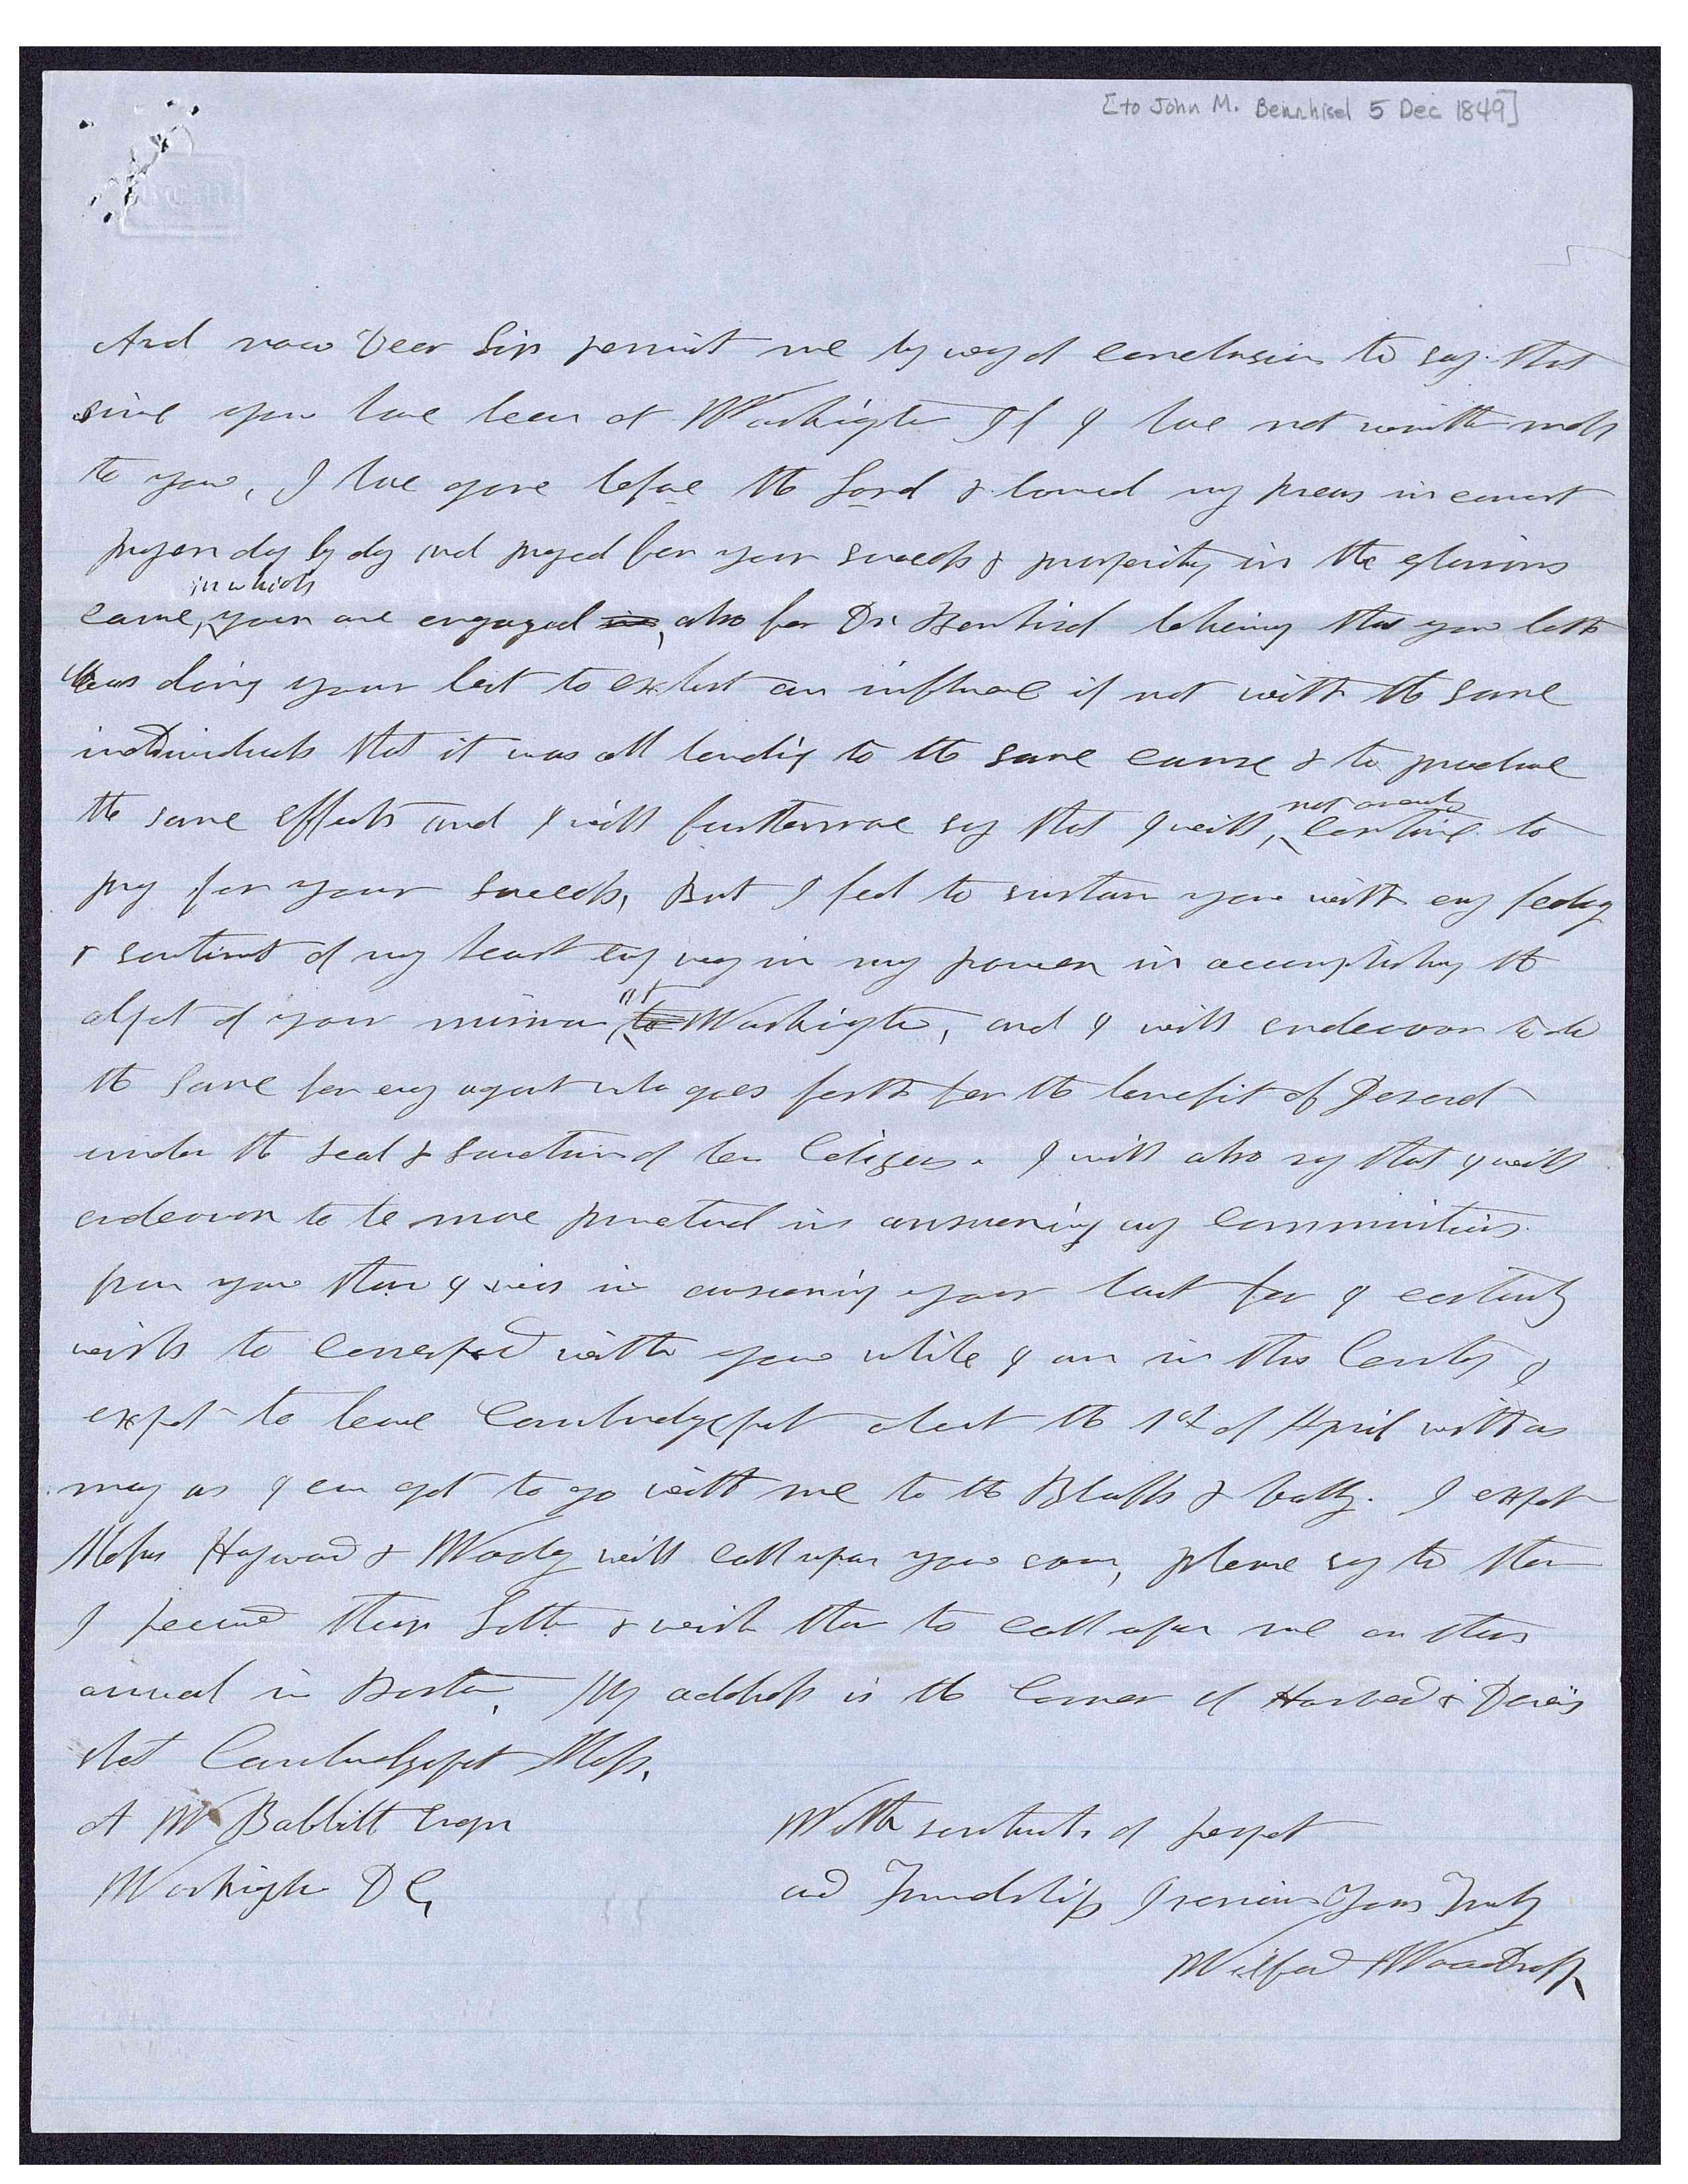 [to John M. Bernhisel 5 Dec 1849]
And now Dear Sir permit me by way of conclusion to say that
since you have been at Washington If I have not written much
to you, I have gone before the Lord & bowed my knees in earnest
prayer day by day and prayed for your success & prosperity in the glorious
in which
cause, you are engaged in, also for Dr Bernhisel believing that you both
was doing your best to exhert an influence if not with the same
individuals that it was all tending to the same cause & to produce
the same effects and I will furthermore say that I will, not ownly continue to
pray for your success, But I feel to sustain you with evry feeling
& sentiment of my heart evry way in my power in accomplishing the
at
object of your mission, to Washington, and I will endeavor to do
the same for evry agent who goes forth for the benefit of Deseret
under the seal & sanction of her Citizens. I will also say that I will
endeavor to be more punctual in answering any communications
from you than I was in answering your last for I certainly
wish to correspond with you while I am in this Country I
expect to leave Cambridgeport about the 1st of April with as
many as I can get to go with me to the Bluffs & vally. I expect
Messrs Haywood & Woody will call upon you soon, please say to them
I received their Letter & wish them to call upon me on their
arrival in Boston, My address is the Corner of Harvard & Davis
street Cambridgeport Mass.
A W Babbitt Esqr
Washington D C,
With sentiments of respect
and Friendship I remain Yours Truly
Wilford Woodruff